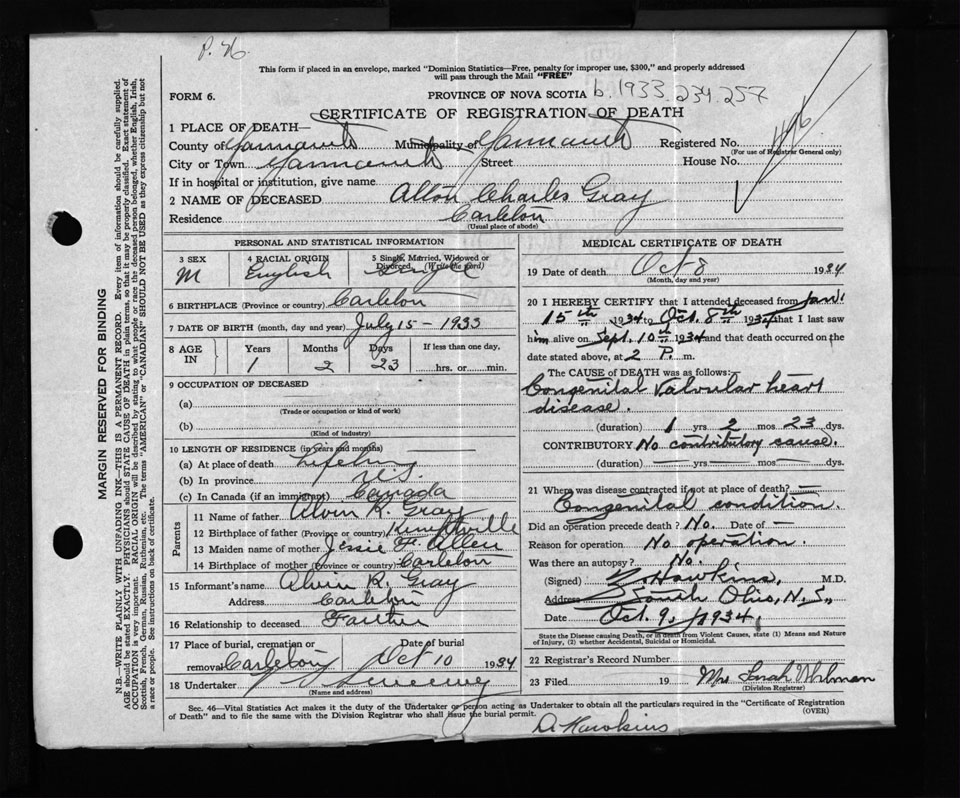 P. N.
This form if placed in an envelope, marked "Dominion Statistics—Free, penalty for improper use, $300," and properly addressed
will pass through the Mail "FREE"
FORM 6.
PROVINCE OF NOVA SCOTIA b. 1933. 234. 257
CERTIFICATE OF REGISTRATION OF DEATH
1 PLACE OF DEATH—
County of Yarmouth Municipality of Yarmouth Registered No.
(For use of Registrar General only)
City or Town Yarmouth Street House No.
If in hospital or institution, give name
2 NAME OF DECEASED Alton Charles Gray
Residence Carleton
(Usual place of abode)
PERSONAL AND STATISTICAL INFORMATION
3 SEX 4 RACIAL ORIGIN 5 Single, Married, Widowed or
Divorced. (Write the word)
M English Single
6 BIRTHPLACE (Province or country) Carleton
7 DATE OF BIRTH (month, day and year) July 15 - 1933
8 AGE IN Years Months Days If less than one day,
1 2 23 hrs. or min.
9 OCCUPATION OF DECEASED
(a)
(Trade or occupation or kind of work)
(b)
(Kind of industry)
10 LENGTH OF RESIDENCE (in years and months)
(a) At place of death
(b) In province
(c) In Canada (if an immigrant) Canada
Parents
11 Name of father Alvin K. Gray
12 Birthplace of father (Province or country)
13 Maiden name of mother Jessie F. Allen
14 Birthplace of mother (Province or country) Carleton
15 Informant's name Alvin K. Gray
Address Carleton
16 Relationship to deceased Father
17 Place of burial, cremation or Date of burial
removal Carleton Oct 10 1934
18 Undertaker V. S. Sweeney
(Name and address)
MEDICAL CERTIFICATE OF DEATH
19 Date of death Oct 8 1934
(Month, day and year)
20 I HEREBY CERTIFY that I attended deceased from Jan.
15th 1934 to Oct. 8th 1934 that I last saw
him alive on Sept. 10th 1934 and that death occurred on the
date stated above, at 2 P. m.
The CAUSE of DEATH was as follows:
Congenital Valvular heart
disease.
(duration) 1 yrs 2 mos 23 dys.
CONTRIBUTORY No contributory cause.
(duration) — yrs — mos — dys.
21 Where was disease contracted if not at place of death? —
Congenital condition.
Did an operation precede death? No. Date of —
Reason for operation No operation.
Was there an autopsy? No.
(Signed) Hawkins, M.D.
Address South Ohio, N.S.,
Date Oct. 9, 1934,
State the Disease causing Death, or in death from Violent Causes, state (1) Means and Nature
of Injury, (2) whether Accidental, Suicidal or Homicidal.
22 Registrar's Record Number
23 Filed 19 Mrs Sarah Whitman
(Division Registrar)
Sec. 46—Vital Statistics Act makes it the duty of the Undertaker or person acting as Undertaker to obtain all the particulars required in the "Certificate of Registration
of Death" and to file the same with the Division Registrar who shall issue the burial permit. (OVER)
D. Hawkins
MARGIN RESERVED FOR BINDING
N.B.—WRITE PLAINLY WITH UNFADING INK—THIS IS A PERMANENT RECORD. Every item of information should be carefully supplied.
AGE should be stated EXACTLY. PHYSICIANS should STATE CAUSE OF DEATH in plain terms, so that it may be properly classified. Exact statement of
OCCUPATION is very important. RACIAL ORIGIN will be described by stating to what people or race the deceased person belonged, whether English, Irish,
Scottish, French, German, Russian, Ruthenian, etc. The terms "AMERICAN" or "CANADIAN" SHOULD NOT BE USED as they express citizenship but not
a race or people. See instructions on back of certificate.